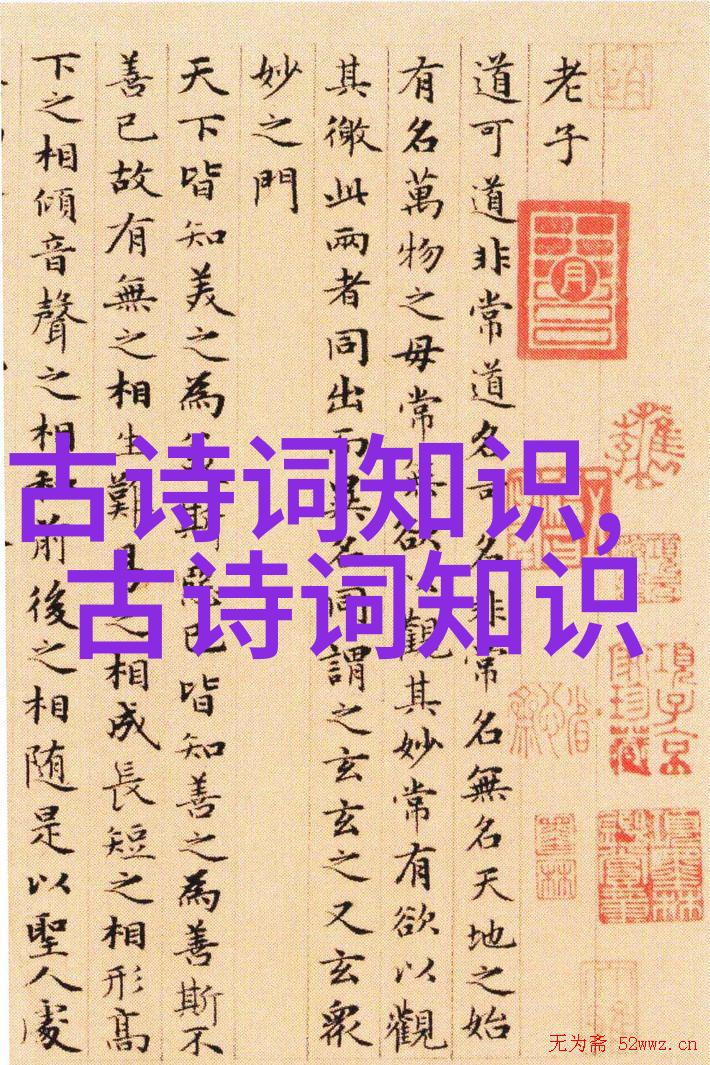 老子
道可道非常道名可名非常名無名天地之始
有名萬物之母常無欲以觀其妙常有欲以觀
其徼此兩者同出而異名同謂之玄玄之又玄衆
妙之門
天下皆知美之為美斯惡已皆知善之為善斯不
善已故有無之相生難易之相成長短之相形髙
下之相傾音聲之相和前後之相随是以聖人處
古诗词知识,
古诗词知识
項子京
家珍藏
无为斋 52wwz.cn